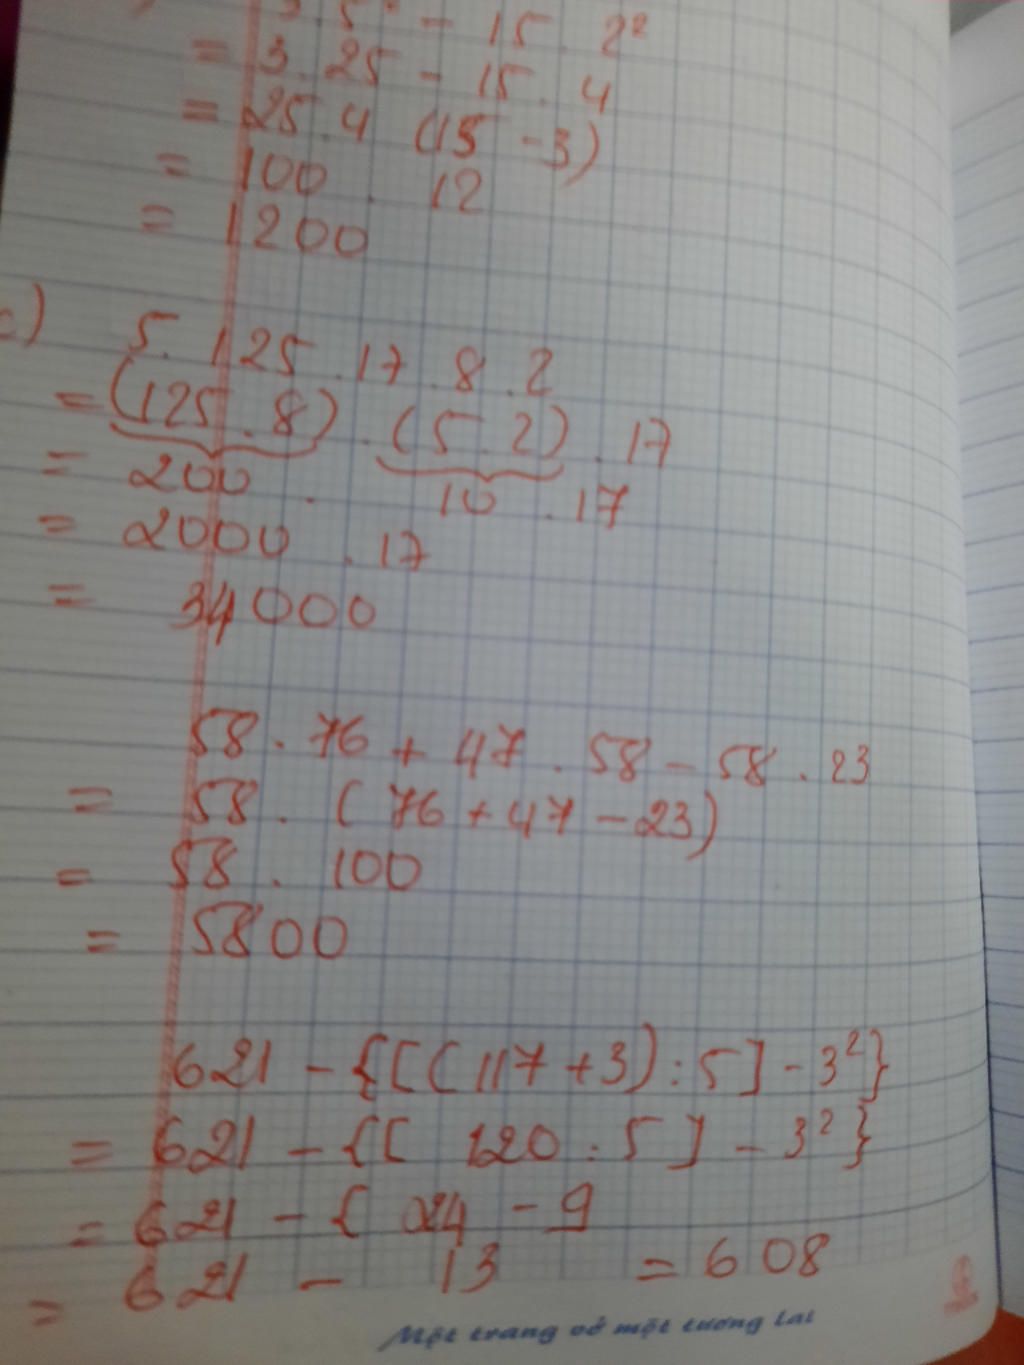 3.5² - 15. 2²
= 3.25 - 15. 4
= 25.4 (15 - 3)
= 100 . 12
= 1200
c) 5. 125 .17 .8 .2
= (125 .8) . (5.2) .17
= 200 . 10 .17
= 2000 .17
= 34000
58.76 + 47 .58 - 58 .23
= 58. (76 + 47 - 23)
= 58 . 100
= 5800
621 - {[(117 + 3) : 5] - 3²}
= 621 - {[ 120 : 5] - 3²}
= 621 - { 24 - 9
= 621 - 13 = 608
Một trang vở một tương lai